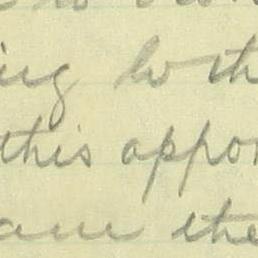 ing to th
this appor
am the